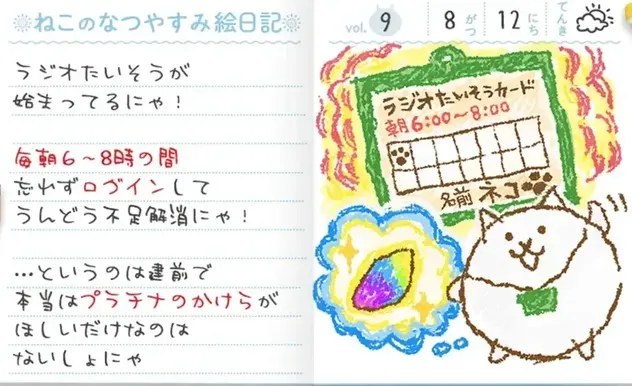 ねこのなつやすみ絵日記
ラジオたいそうが
始まってるにゃ！
毎朝6～8時の間
忘れずログインして
うんどう不足解消にゃ！
…というのは建前で
本当はプラチナのかけらが
ほしいだけなのは
ないしょにゃ
vol. 9
8 がつ 12 にち てんき
ラジオたいそうカード
朝6:00～8:00
名前 ネコ